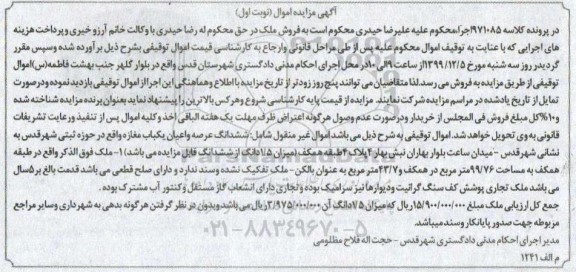 آگهی مزایده اموال (نوبت اول)
در پرونده کلاسه ۹۷۱۰۸۵اجرا،محکوم علیه علیرضا حیدری محکوم است به فروش ملک در حق محکوم له رضا حیدری با وکالت خانم آرزو خیری و پرداخت هزینه
های اجرایی که با عنایت به توقیف اموال محکوم علیه پس از طی مراحل قانونی وارجاع به کارشناسی قیمت اموال توقیفی بشرح ذیل بر آورده شده وسپس مقرر
گردید روز سه شنبه مورخ ۱۳۹۹/۱۲/۵از ساعت ۹الی ۱۰در محل اجرای احکام مدنی دادگستری شهرستان قدس واقع در بلوار کلهر جنب بهشت فاطمه(س)اموال
توقیفی از طریق مزایده به فروش می رسد.لذا متقاضیان می توانند پنج روز زودتر از تاریخ مزایده با اطلاع وهماهنگی این اجرا از اموال توقیفی بازدید نموده ودرصورت
تمایل از تاریخ یادشده در مراسم مزایده شرکت نمایند. مزایده از قیمت پایه کارشناسی شروع وهر کس بالاترین را پیشنهاد نماید بعنوان برنده مزایده شناخته شده
و۱۰%کل مبلغ فروش فی المجلس از خریدار ودرصورت عدم وصول هرگونه اعتراض ظرف مهلت یک هفته الباقی اخذ وکلیه اموال پس از تنفیذ ورعایت تشریفات
قانونی به وی تحویل خواهد شد. اموال توقیفی به شرح ذیل می باشد:اموال غیر منقول شامل: ششدانگ عرصه واعیان یکباب مغازه واقع در حوزه ثبتی شهرقدس به
نشانی شهرقدس – میدان ساعت بلوار بهاران نبش بهار ۴پلاک ۴طبقه همکف (میزان ۱/۵دانگ از ششدانگ قابل مزایده می باشد) ۱–ملک فوق الذکر واقع در طبقه
همکف به مساحت ۹۹/۷۶ متر مربع در همکف و۴۳/۷متر مربع به عنوان بالکن – ملک تفکیک نشده وسند ندارد و دارای صلح قطعی می باشد قدمت بالغ بر۵سال
می باشد ملک تجاری پوشش کف سنگ گرانیت ودیوارها نیز سرامیک بوده و تجاری دارای انشعاب گاز مستقل وکنتور آب مشترک بوده .
جمع کل ارزیابی ملک مبلغ ۱۵/۹۰۰/۰۰۰/۰۰۰ریال که میزان ۱/۵دانگ آن ۳/۹۷۵/۰۰۰/۰۰۰ریال می باشد وبدون در نظر گرفتن هر گونه بدهی به شهرداری وسایر مراجع
مربوطه جهت صدور پایانکار وسند میباشد.
مدیر اجرای احکام مدنی دادگستری شهرقدس – حجت اله فلاح مظلومی
م الف ۱۲۴۱
۰۲۱-۸۸۳۴۹۶۷۰-۵